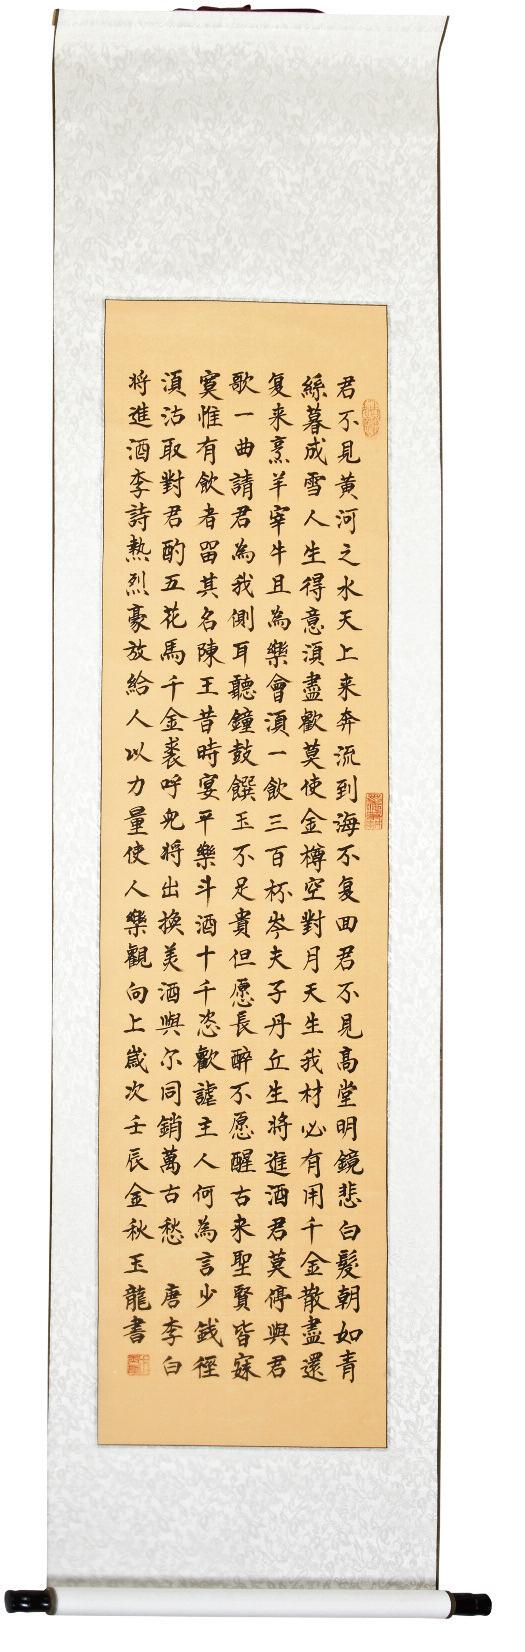 君不見黃河之水天上来奔流到海不复回君不見高堂明鏡悲白髮朝如青
絲暮成雪人生得意湏盡歡莫使金樽空對月天生我材必有用千金散盡還
复来烹羊宰牛且為樂會湏一飲三百杯岑夫子丹丘生將進酒君莫停與君
歌一曲請君為我側耳聽鐘鼓饌玉不足貴但愿長醉不愿醒古来聖賢皆寂
寞惟有飲者留其名陳王昔時宴平樂斗酒十千恣歡謔主人何為言少錢徑
湏沽取對君酌五花馬千金裘呼兒將出換美酒與尔同銷萬古愁 唐李白
將進酒李詩熱烈豪放給人以力量使人樂觀向上歲次壬辰金秋玉龍書